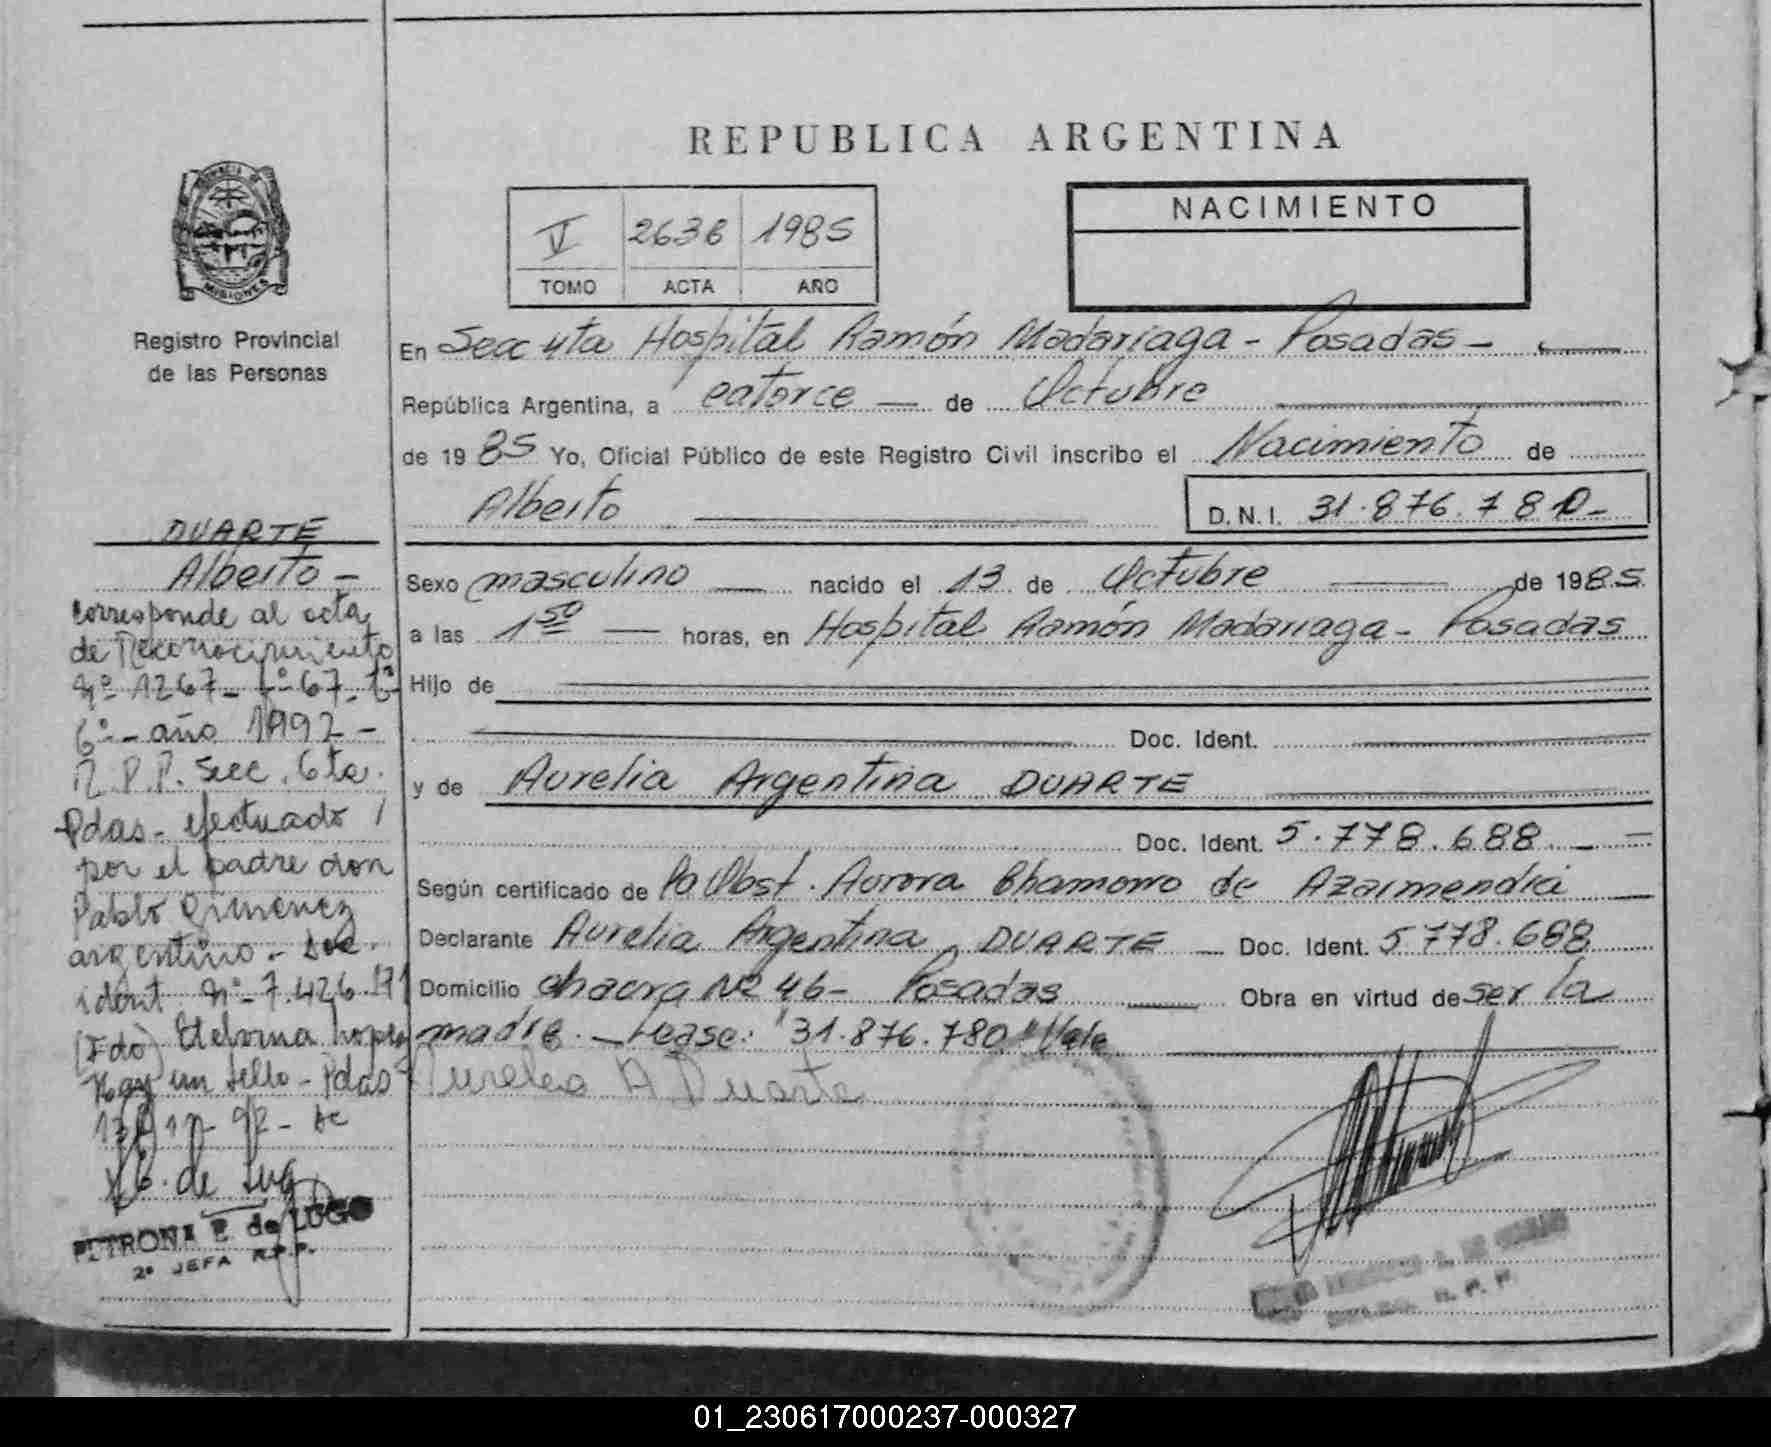 REPUBLICA ARGENTINA
PROVINCIA DE
MISIONES
Registro Provincial
de las Personas
V 2638 1985
TOMO ACTA AÑO
NACIMIENTO
En Secc 4ta Hospital Ramón Madariaga - Posadas -
República Argentina, a catorce — de Octubre
de 1985 Yo, Oficial Público de este Registro Civil inscribo el Nacimiento de
Alberto D.N.I. 31.876.780-
Sexo masculino — nacido el 13 de Octubre — de 1985
a las 1 50 — horas, en Hospital Ramón Madariaga - Posadas
Hijo de
Doc. Ident.
y de Aurelia Argentina DUARTE
Doc. Ident. 5.778.688. —
Según certificado de la Obst. Aurora Chamorro de Azarmendia
Declarante Aurelia Argentina DUARTE — Doc. Ident. 5.778.688
Domicilio chacra Nº 46 - Posadas — Obra en virtud de ser la
madre. — Lease: "31.876.780" Vale
Aurelia A Duarte
DUARTE
Alberto -
corresponde al acta
de Reconocimiento
Nº 1267 - Fº 67 - Tº
6º - año 1992 -
R.P.P. Secc. 6ta.
Pdas - efectuado
por el padre don
Pablo Gimenez
argentino - Doc.
ident Nº 7.426.171
(Fdo) Etelvina Lopez
Hay un sello - Pdas
de Lug
PETRONA E. de LUGO
2º JEFA R.P.P.
R. P. P.
01_230617000237-000327